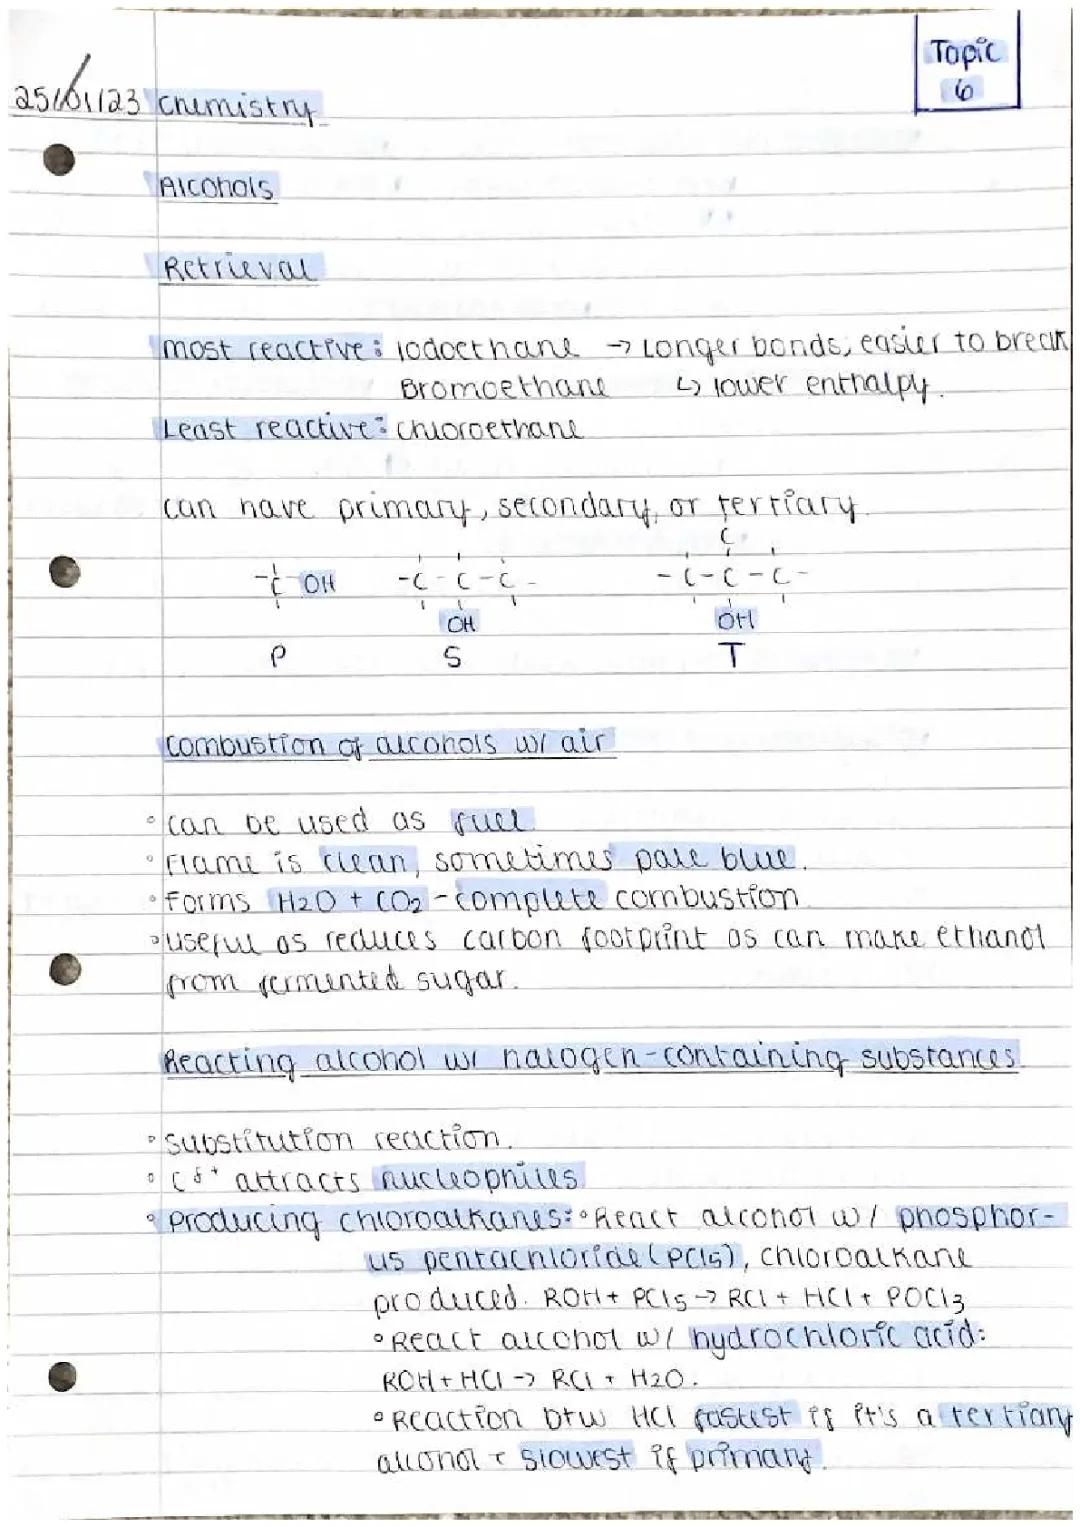 Topic
6
25/01/23 Chemistry
Alcohols
Retrieval
most reactive: iodoethane → Longer bonds, easier to break
Bromoethane ↳ lower enthalpy.
Least reactive: chloroethane
can have primary, secondary, or tertiary.
C
-C-OH -C-C-C- -C-C-C-
OH OH
P S T
Combustion of alcohols w/ air
• can be used as fuel
• Flame is clean, sometimes pale blue.
• Forms H2O + CO2 - complete combustion
• useful as reduces carbon footprint as can make ethanol
from fermented sugar.
Reacting alcohol w/ halogen-containing substances
• substitution reaction.
• Cδ+ attracts nucleophiles
• Producing chloroalkanes: • React alcohol w/ phosphor-
us pentachloride (PCl5), chloroalkane
produced. ROH + PCl5 → RCl + HCl + POCl3
• React alcohol w/ hydrochloric acid:
ROH + HCl → RCl + H2O.
• Reaction btw HCl fastest if it's a tertiary
alcohol + slowest if primary.